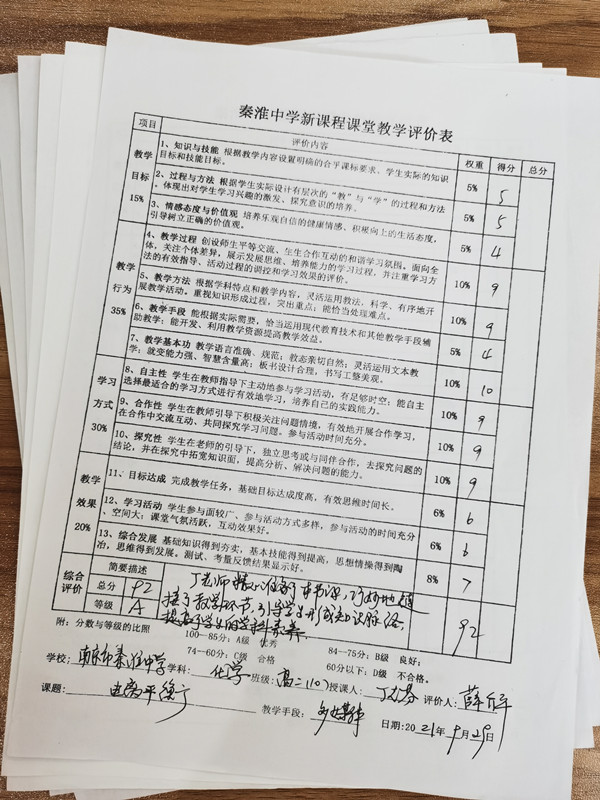 秦淮中学新课程课堂教学评价表
项目 评价内容 权重 得分 总分
教学目标 15%
1、知识与技能 根据教学内容设置明确的合乎课标要求、学生实际的知识
目标和技能目标。 5% 5
2、过程与方法 根据学生实际设计有层次的“教”与“学”的过程和方法
。体现出对学生学习兴趣的激发、探究意识的培养。 5% 5
3、情感态度与价值观 培养乐观自信的健康情感、积极向上的生活态度,
引导树立正确的价值观。 5% 4
教学行为 35%
4、教学过程 创设师生平等交流、生生合作互动的和谐学习氛围。面向全
体,关注个体差异,展示发展思维、培养能力的学习过程,并注重学习方
法的有效指导、活动过程的调控和学习效果的评价。 10% 9
5、教学方法 根据学科特点和教学内容,灵活运用教法,科学、有序地开
展教学活动。重视知识形成过程,突出重点;能恰当处理难点。 10% 9
6、教学手段 能根据实际需要,恰当运用现代教育技术和其他教学手段辅
助教学;能开发、利用教学资源提高教学效益。 5% 4
7、教学基本功 教学语言准确、规范;教态亲切自然;灵活运用文本教
学;就变能力强、智慧含量高;板书设计合理,书写工整美观。 10% 10
学习方式 30%
8、自主性 学生在教师指导下主动地参与学习活动,有足够时空;能自主
选择最适合的学习方式进行有效地学习,培养自己的实践能力。 10% 9
9、合作性 学生在教师引导下积极关注问题情境,有效地开展合作学习,
在合作中交流互动、共同探究学习问题。参与活动时间充分。 10% 9
10、探究性 学生在老师的引导下,独立思考或与同伴合作,去探究问题的
结论,并在探究中拓宽知识面,提高分析、解决问题的能力。 10% 9
教学效果 20%
11、目标达成 完成教学任务,基础目标达成度高,有效思维时间长。 6% 6
12、学习活动 学生参与面较广、参与活动方式多样,参与活动的时间充分
、空间大;课堂气氛活跃,互动效果好。 6% 6
13、综合发展 基础知识得到夯实,基本技能得到提高,思想情操得到陶
冶,思维得到发展。测试、考量反馈结果显示好。 8% 7
综合评价 简要描述
总分 92
等级 A
丁老师精心准备了本节课,巧妙地链
接了教学环节,引导学生形成知识脉络,
提高了学生的学科素养。
92
附:分数与等级的比照 100—85分:A级 优秀 84—75分:B级 良好;
74—60分:C级 合格 60分以下:D级 不合格。
学校:南京市秦淮中学 学科:化学 班级:高二(10) 授课人: 评价人:
课题:电离平衡 教学手段:多媒体 日期:2021年9月29日